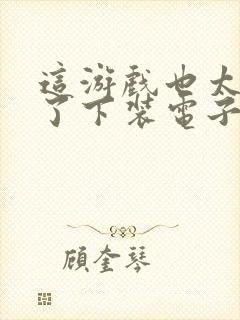 這游戲也太
了下裝電子
顧奎琴